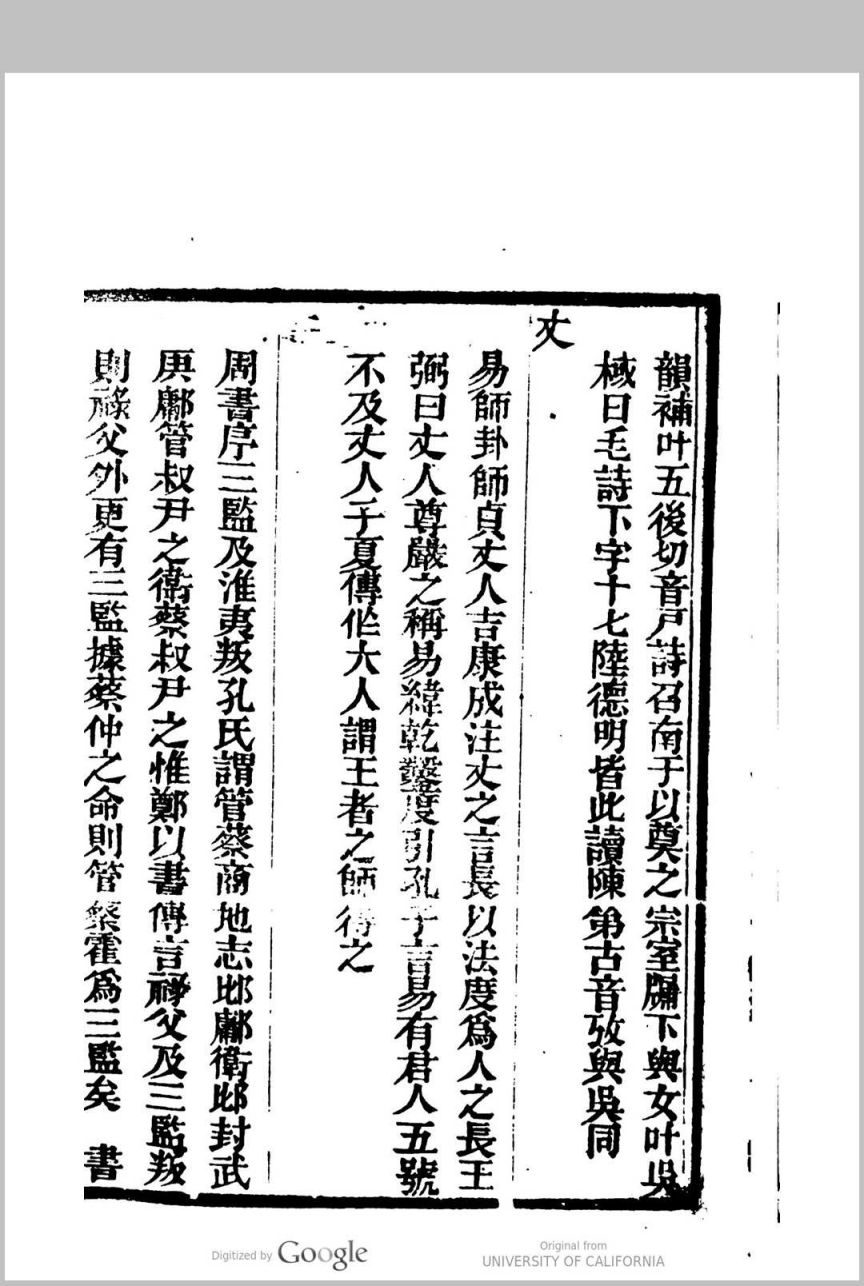 韻補叶五後切音戸詩召南于以奠之宗室牖下與女叶吳
棫曰毛詩下字十七陸德明皆此讀陳第古音攷與吳同
丈
易師卦師貞丈人吉康成注丈之言長以法度爲人之長王
弼曰丈人尊嚴之稱易緯乾鑿度引孔子言易有君人五號
不及丈人子夏傳作大人謂王者之師得之
三
周書序三監及淮夷叛孔氏謂管蔡商地志邶鄘衛邶封武
庚鄘管叔尹之衛蔡叔尹之惟鄭以書傳言祿父及三監叛
則祿父外更有三監據蔡仲之命則管蔡霍爲三監矣 書
Digitized by Google
Original from
UNIVERSITY OF CALIFORNIA